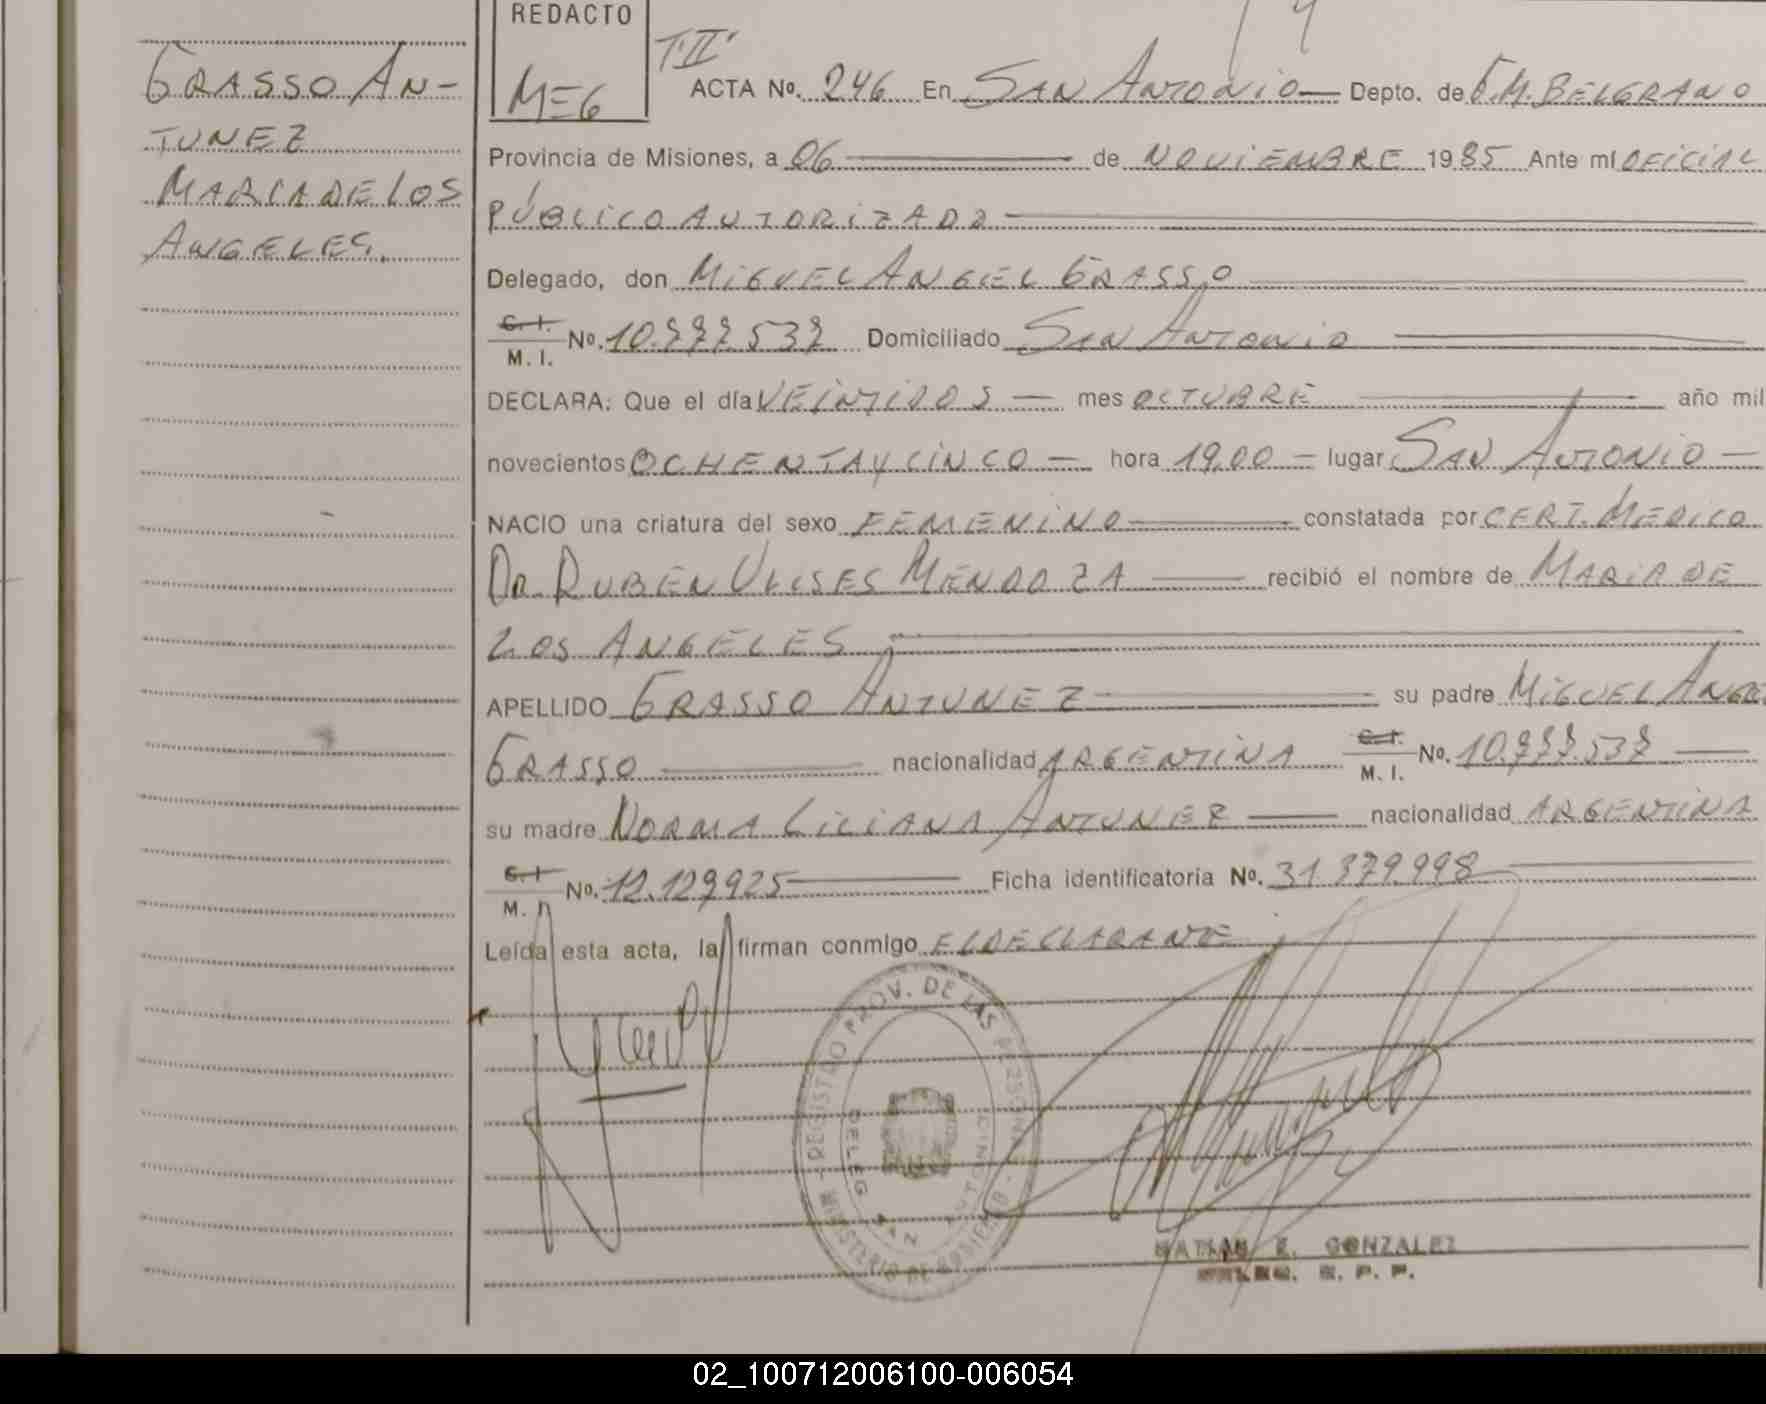 GRASSO AN-
TUNEZ
MARIA DE LOS
ANGELES.
REDACTO
MEG
T.II
ACTA No. 246 En SAN ANTONIO Depto. de G.M. BELGRANO
Provincia de Misiones, a 06 de NOVIEMBRE 1985 Ante mí OFICIAL
PÚBLICO AUTORIZADO
Delegado, don MIGUEL ANGEL GRASSO
C.I.
M. I. No. 10.777.537 Domiciliado SAN ANTONIO
DECLARA: Que el día VEINTIDOS mes OCTUBRE año mil
novecientos OCHENTA Y CINCO hora 19,00 lugar SAN ANTONIO
NACIO una criatura del sexo FEMENINO constatada por CERT. MEDICO
DR. RUBEN ULISES MENDOZA recibió el nombre de MARIA DE
LOS ANGELES
APELLIDO GRASSO ANTUNEZ su padre MIGUEL ANGEL
GRASSO nacionalidad ARGENTINA C.I. M. I. No. 10.777.537
su madre NORMA LILIANA ANTUNEZ nacionalidad ARGENTINA
C.I. M. I. No. 12.129925 Ficha identificatoria No. 31.379.998
Leída esta acta, la firman conmigo EL DECLARANTE
REGISTRO PROV. DE LAS PERSONAS
MINISTERIO DE GOBIERNO
DELEG SAN ANTONIO
GONZALEZ
02_100712006100-006054